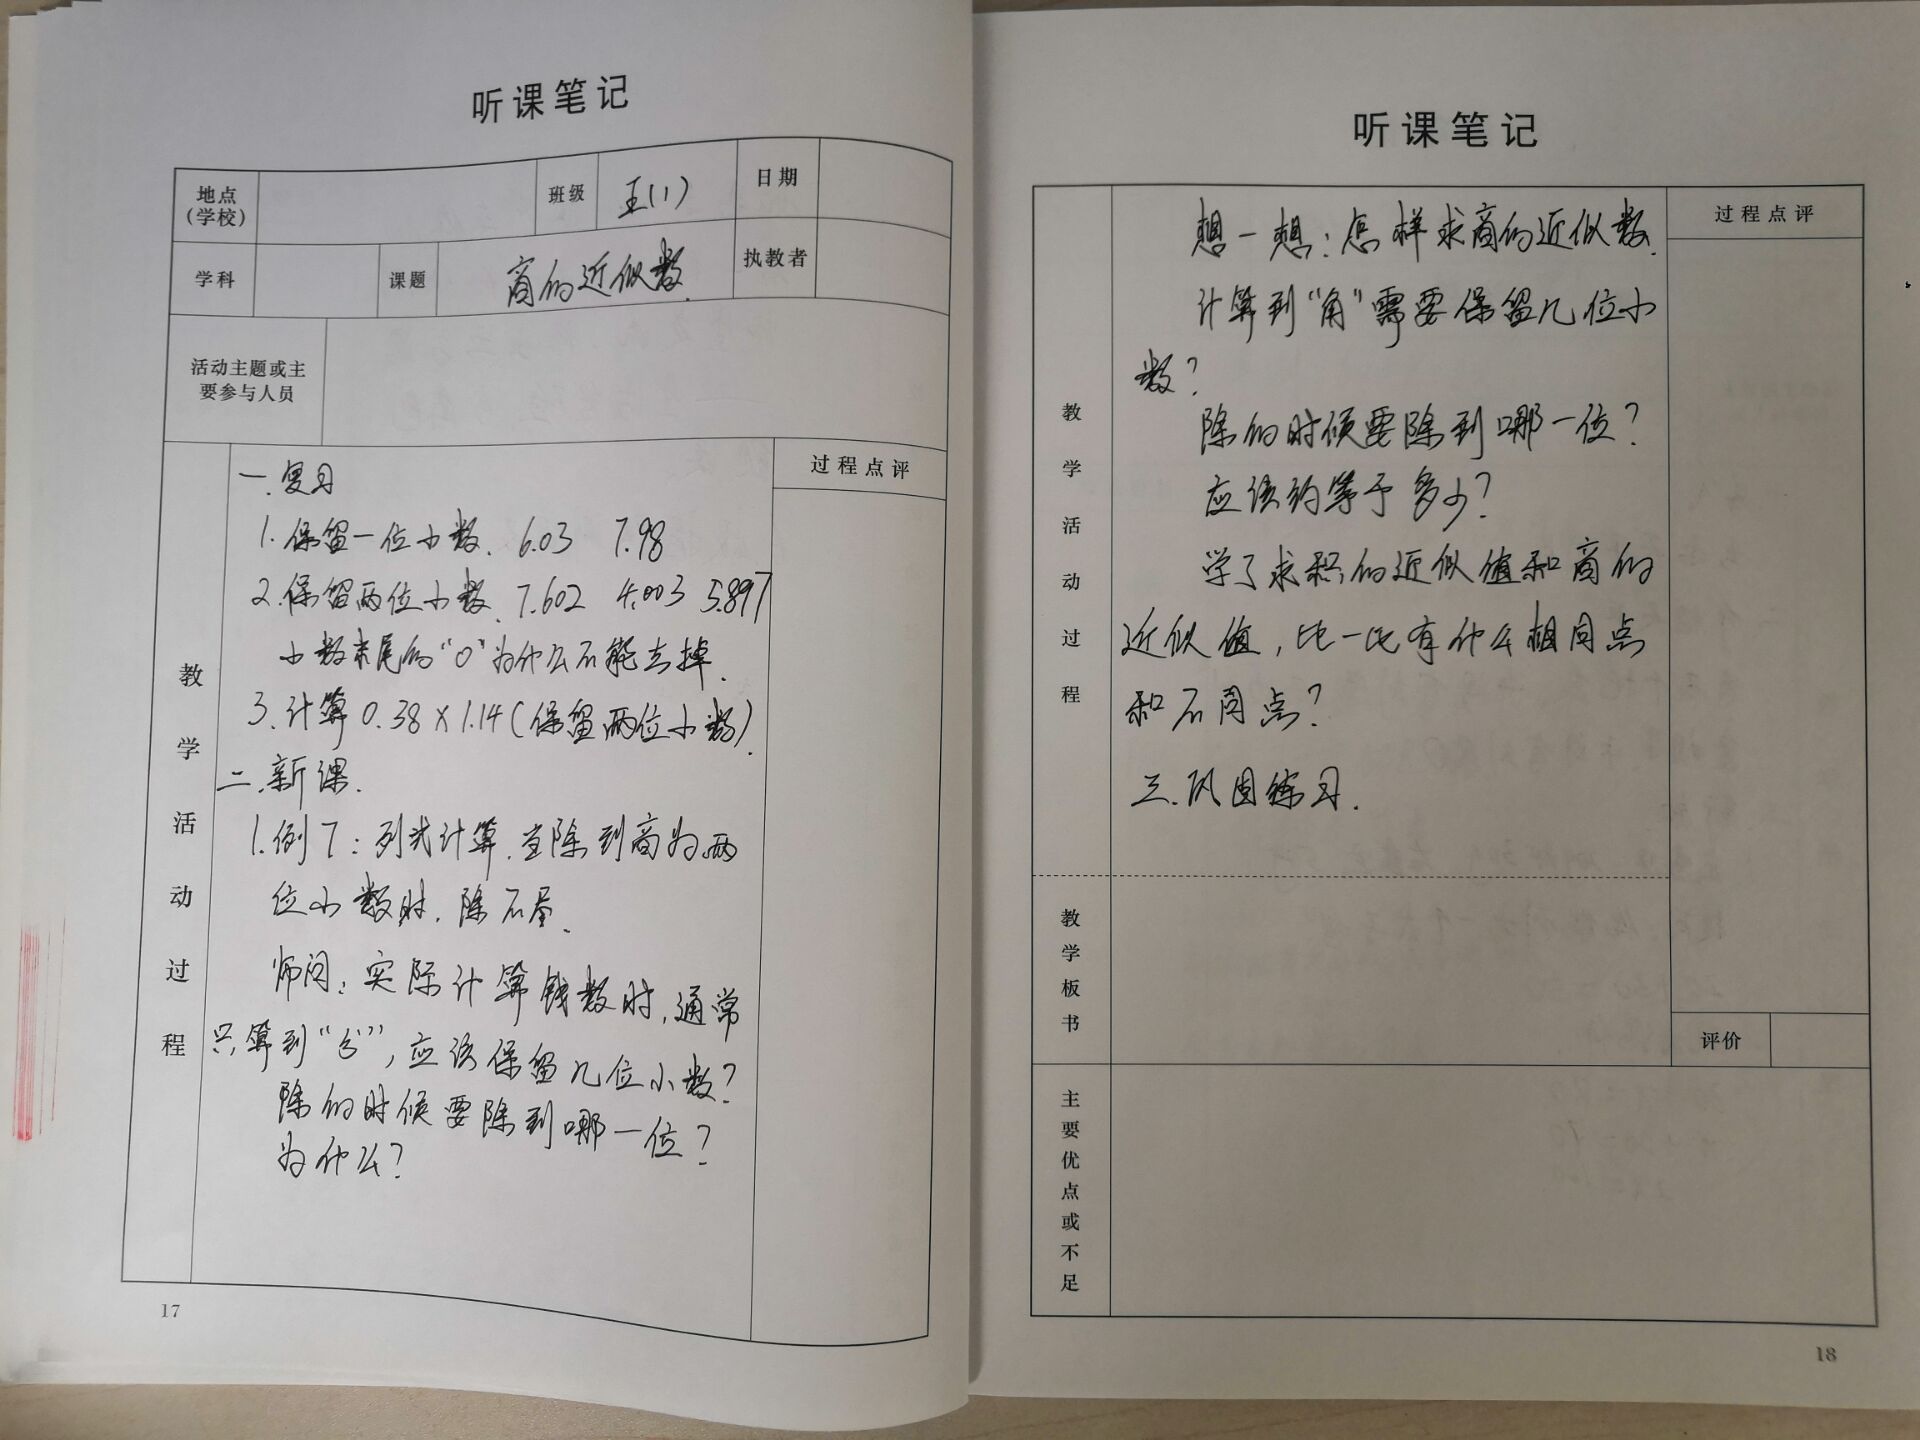 听课笔记
地点
(学校)
班级
五(1)
日期
学科
课题
商的近似数
执教者
活动主题或主
要参与人员
教学活动过程
过程点评
一.复习
1.保留一位小数. 6.03 7.98
2.保留两位小数. 7.602 4.003 5.897
小数末尾的“0”为什么不能去掉.
3.计算0.38×1.14(保留两位小数).
二.新课.
1.例7:列式计算.当除到商为两
位小数时.除不尽.
师问:实际计算钱数时,通常
只算到“分”,应该保留几位小数?
除的时候要除到哪一位?
为什么?
17
听课笔记
教学活动过程
过程点评
想一想:怎样求商的近似数.
计算到“角”需要保留几位小
数?
除的时候要除到哪一位?
应该约等于多少?
学了求积的近似值和商的
近似值,比一比有什么相同点
和不同点?
三.巩固练习.
教学板书
评价
主要优点或不足
18